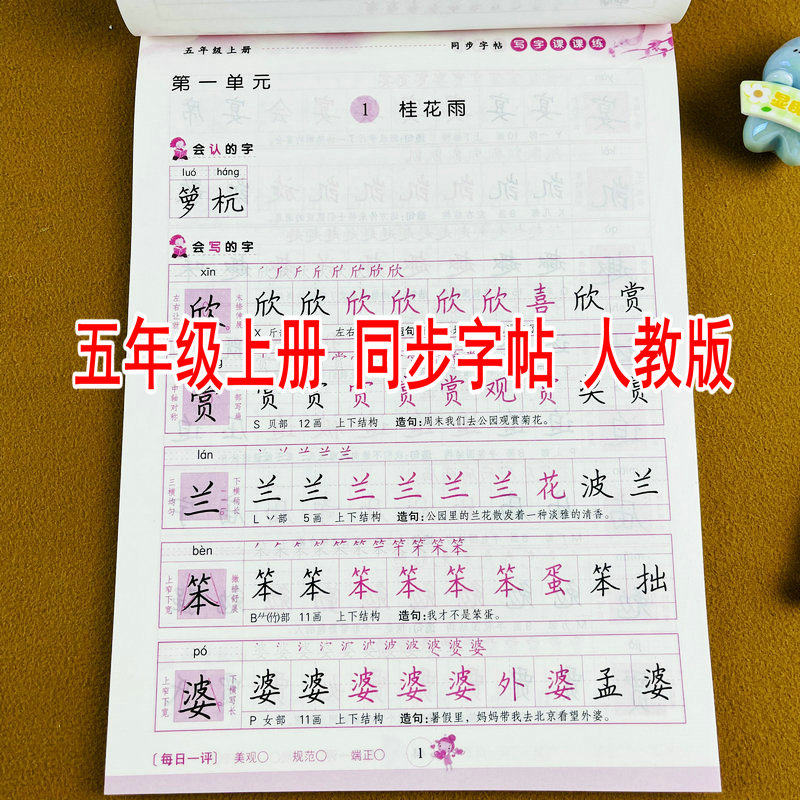 五年级上册
同步字帖 写字课课练
第一单元
1 桂花雨
会认的字
luó háng
箩 杭
会写的字
xīn
左右让就 末捺伸展
欣 欣 欣 欣 欣 欣 欣 喜 欣 赏
五年级上册 同步字帖 人教版
中轴对称
赏 赏 赏 赏 赏 赏 观 赏 奖 赏
S 贝部 12画 上下结构 造句:周末我们去公园观赏菊花。
lán
三横均匀 下横稍长
兰 兰 兰 兰 兰 兰 兰 花 波 兰
L 丷部 5画 上下结构 造句:公园里的兰花散发着一种淡雅的清香。
bèn
上窄下宽 撇捺舒展
笨 笨 笨 笨 笨 笨 笨 蛋 笨 拙
B ⺮(竹)部 11画 上下结构 造句:我才不是笨蛋。
pó
上窄下宽 下横写长
婆 婆 婆 婆 婆 婆 外 婆 孟 婆
P 女部 11画 上下结构 造句:暑假里,妈妈带我去北京看望外婆。
〔每日一评〕 美观〇 规范〇 端正〇
1